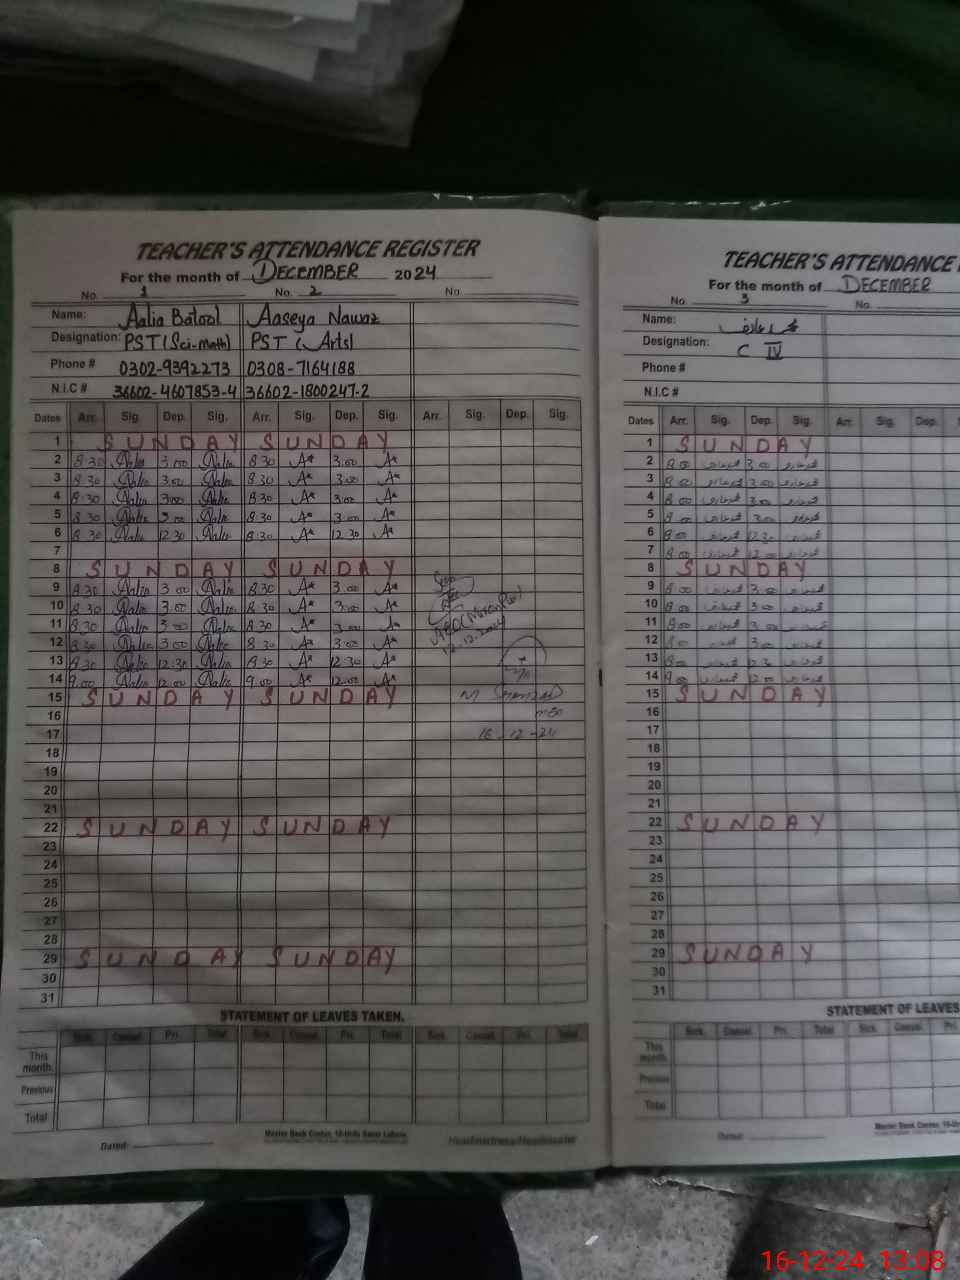 TEACHER'S ATTENDANCE REGISTER
For the month of DECEMBER 2024
No. 1 No. 2 No.
Name: Aalia Batool Aaseya Nawaz
Designation: PST (Sci-math) PST (Arts)
Phone # 0302-9392273 0308-7164188
N.I.C # 36602-4607853-4 36602-1800247-2
Dates Arr. Sig. Dep. Sig. Arr. Sig. Dep. Sig. Arr. Sig. Dep. Sig.
1 SUNDAY SUNDAY
2 8.30 Aalia 3.00 Aalia 8.30 A* 3.00 A*
3 8.30 Aalia 3.00 Aalia 8.30 A* 3.00 A*
4 8.30 Aalia 3.00 Aalia 8.30 A* 3.00 A*
5 8.30 Aalia 3.00 Aalia 8.30 A* 3.00 A*
6 8.30 Aalia 12.30 Aalia 8.30 A* 12.30 A*
7
8 SUNDAY SUNDAY
9 8.30 Aalia 3.00 Aalia 8.30 A* 3.00 A*
10 8.30 Aalia 3.00 Aalia 8.30 A* 3.00 A*
11 8.30 Aalia 3.00 Aalia 8.30 A* 3.00 A*
12 8.30 Aalia 3.00 Aalia 8.30 A* 3.00 A*
12.12.2024
13 8.30 Aalia 12.30 Aalia 8.30 A* 12.30 A*
14 9.00 Aalia 12.00 Aalia 9.00 A* 12.00 A*
15 SUNDAY SUNDAY
16
17 16-12-24
18
19
20
21
22 SUNDAY SUNDAY
23
24
25
26
27
28
29 SUNDAY SUNDAY
30
31
STATEMENT OF LEAVES TAKEN.
Sick. Casual. Pri. Total Sick. Casual. Pri. Total Sick. Casual. Pri. Total
This month.
Previous
Total
Dated:
Headmistress/Headmaster
TEACHER'S ATTENDANCE
For the month of DECEMBER
No. 3 No.
Name: محمد عارف
Designation: C IV
Phone #
N.I.C #
Dates Arr. Sig. Dep. Sig. Arr. Sig. Dep.
1 SUNDAY
2 8.00 3.00
3 8.00 3.00
4 8.00 3.00
5 8.00 3.00
6 8.00 12.30
7 8.00 12.00
8 SUNDAY
9 8.00 3.00
10 8.00 3.00
11 8.00 3.00
12 8.00 3.00
13 8.00
14 9.00 12.00
15 SUNDAY
16
17
18
19
20
21
22 SUNDAY
23
24
25
26
27
28
29 SUNDAY
30
31
STATEMENT OF LEAVES
Sick. Casual. Pri. Total Sick. Casual. Pri.
This month.
Previous
Total
Dated:
16-12-24 13:08